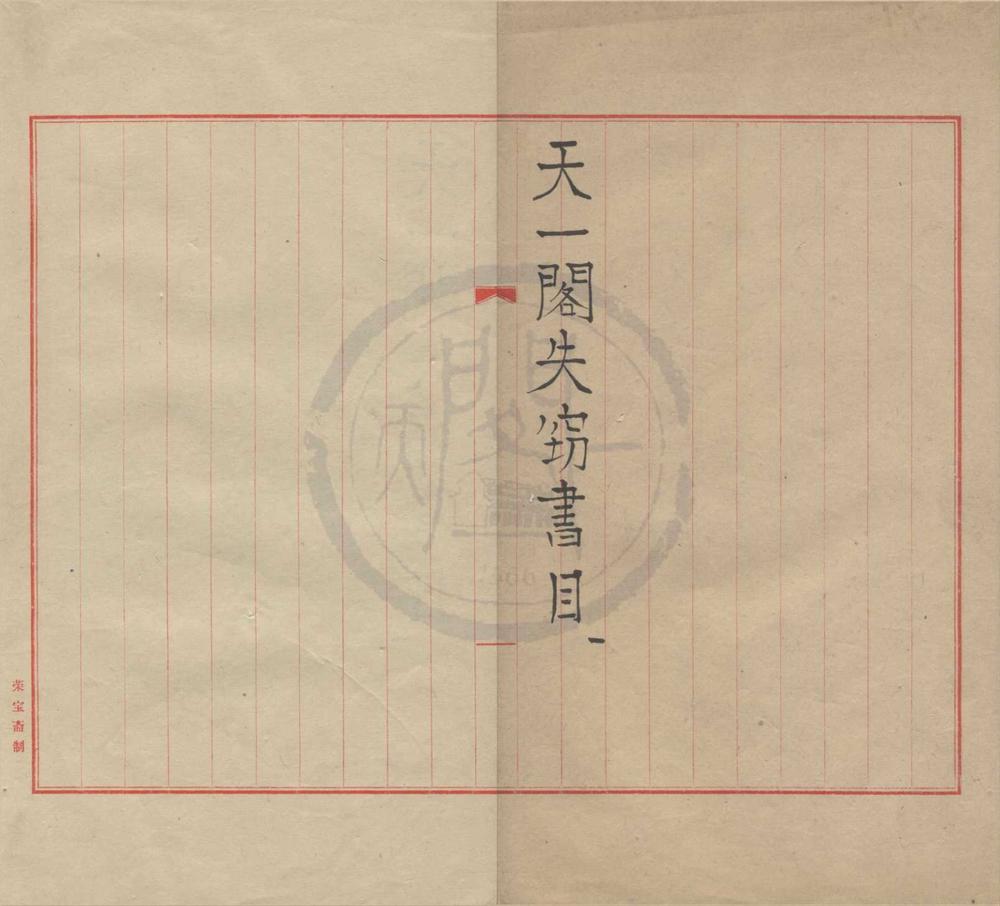 天一閣失窃書目
一
荣宝斋制